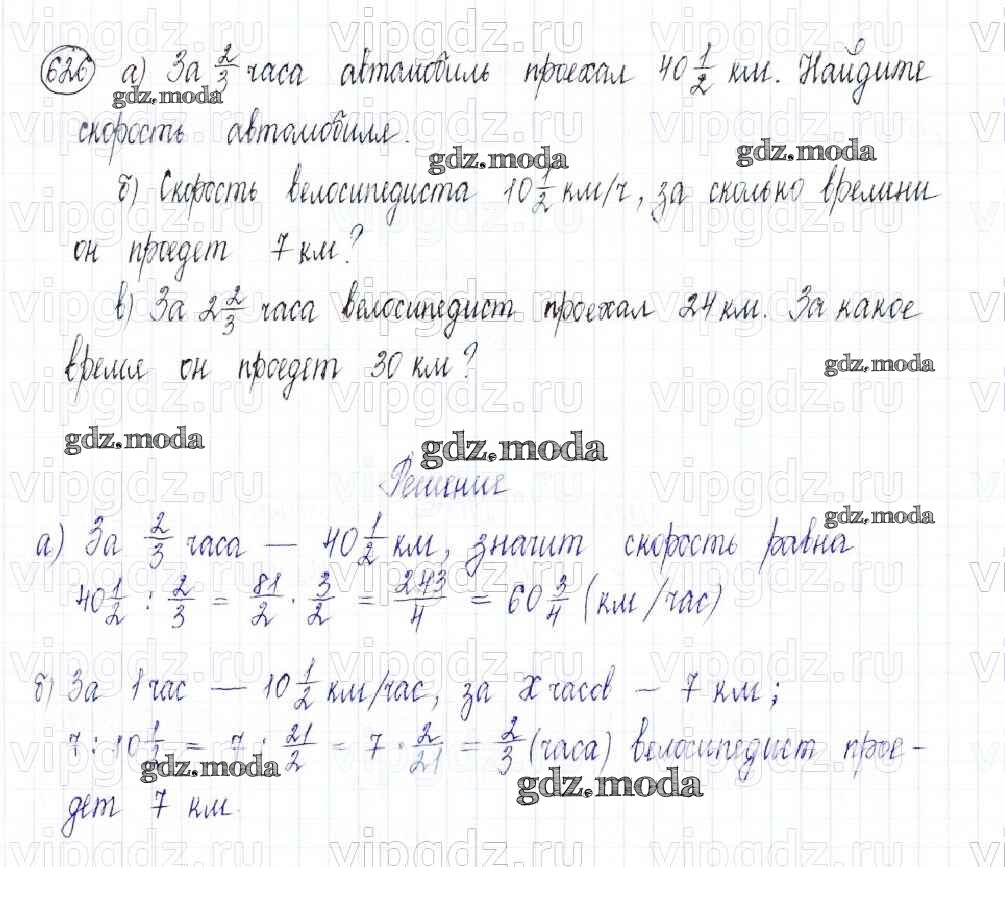 626 а) За 2/3 часа автомобиль проехал 40 1/2 км. Найдите
скорость автомобиля.
б) Скорость велосипедиста 10 1/2 км/ч, за сколько времени
он проедет 7 км?
в) За 2 2/3 часа велосипедист проехал 24 км. За какое
время он проедет 30 км?
Решение
а) За 2/3 часа — 40 1/2 км, значит скорость равна
40 1/2 : 2/3 = 81/2 · 3/2 = 243/4 = 60 3/4 (км/час)
б) За 1 час — 10 1/2 км/час, за x часов — 7 км;
7 : 10 1/2 = 7 : 21/2 = 7 · 2/21 = 2/3 (часа) велосипедист прое-
дет 7 км.
gdz.moda
vipgdz.ru